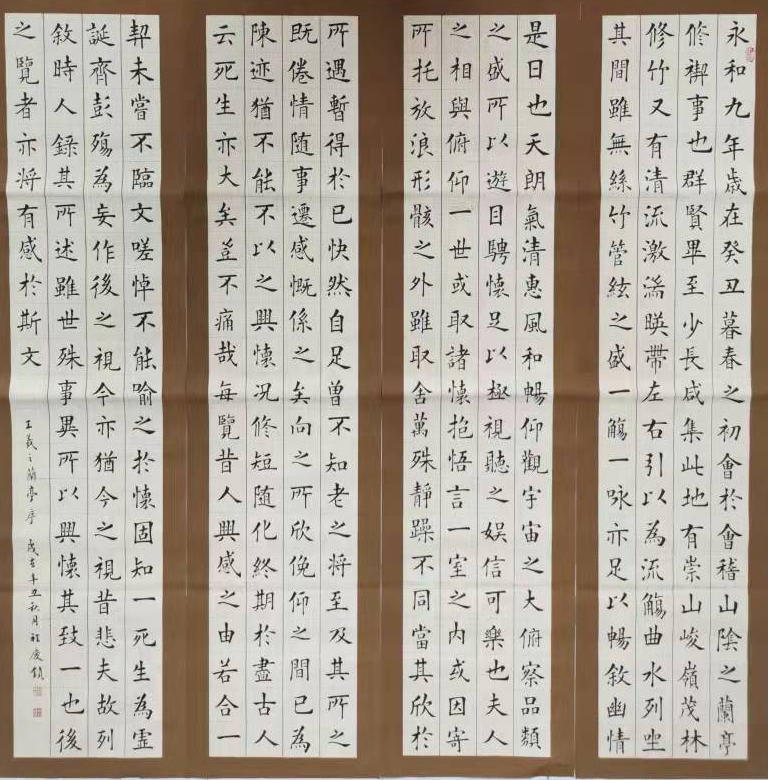 永和九年歲在癸丑暮春之初會於會稽山陰之蘭亭
修禊事也群賢畢至少長咸集此地有崇山峻嶺茂林
修竹又有清流激湍暎帶左右引以為流觴曲水列坐
其間雖無絲竹管絃之盛一觴一咏亦足以暢敘幽情
是日也天朗氣清惠風和暢仰觀宇宙之大俯察品類
之盛所以遊目騁懷足以極視聽之娛信可樂也夫人
之相與俯仰一世或取諸懷抱悟言一室之內或因寄
所托放浪形骸之外雖取舍萬殊靜躁不同當其欣於
所遇暫得於己快然自足曾不知老之將至及其所之
既倦情隨事遷感慨係之矣向之所欣俛仰之間已為
陳迹猶不能不以之興懷况修短隨化終期於盡古人
云死生亦大矣豈不痛哉每覽昔人興感之由若合一
契未嘗不臨文嗟悼不能喻之於懷固知一死生為虛
誕齊彭殤為妄作後之視今亦猶今之視昔悲夫故列
敘時人錄其所述雖世殊事異所以興懷其致一也後
之覽者亦將有感於斯文
王羲之蘭亭序 歲在辛丑秋月